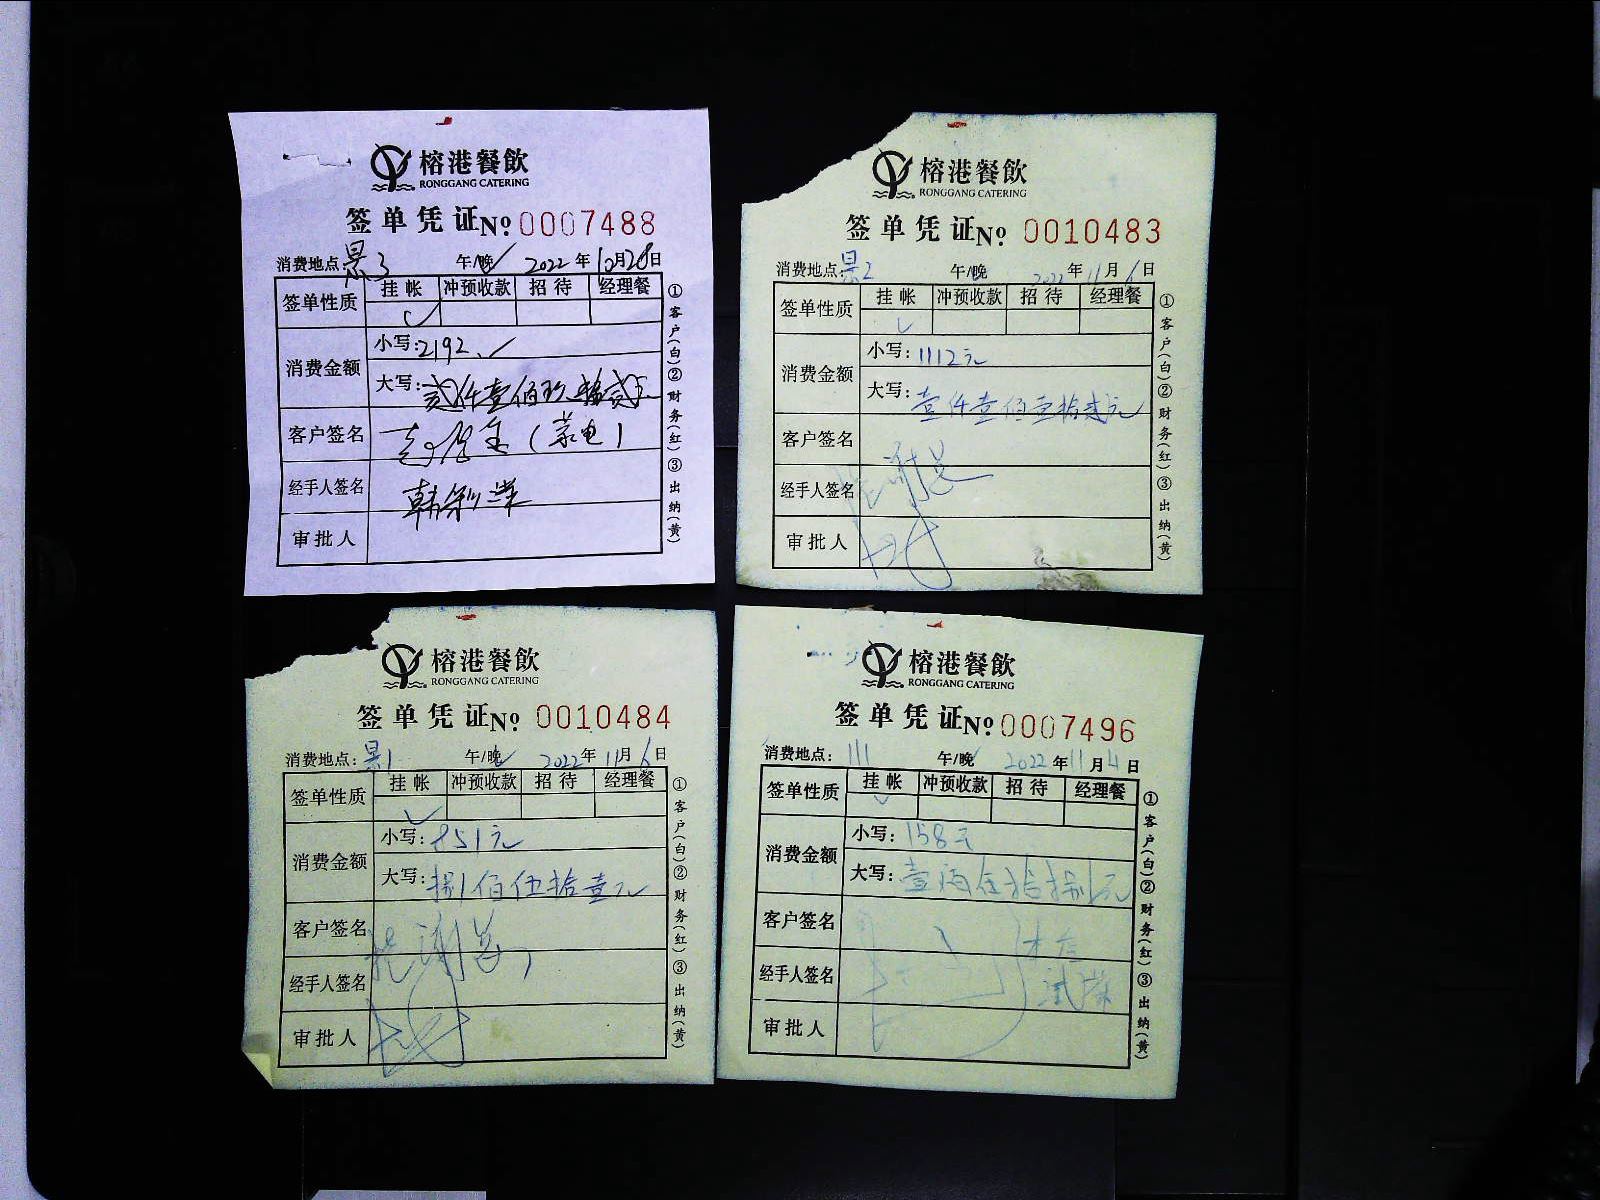 榕港餐飲
RONGGANG CATERING
签单凭证 No 0007488
消费地点:景3 午/晚 2022年10月28日
签单性质 挂帐 冲预收款 招待 经理餐
消费金额 小写:2192.
大写:贰仟壹佰玖拾贰元
客户签名
经手人签名
审批人
①客户(白)②财务(红)③出纳(黄)
榕港餐飲
RONGGANG CATERING
签单凭证 No 0010483
消费地点:景2 午/晚 2022年11月6日
签单性质 挂帐 冲预收款 招待 经理餐
消费金额 小写:1112元
大写:壹仟壹佰壹拾贰元
客户签名
经手人签名
审批人
①客户(白)②财务(红)③出纳(黄)
榕港餐飲
RONGGANG CATERING
签单凭证 No 0010484
消费地点:景1 午/晚 2022年11月6日
签单性质 挂帐 冲预收款 招待 经理餐
消费金额 小写:851元
大写:捌佰伍拾壹元
客户签名
经手人签名
审批人
①客户(白)②财务(红)③出纳(黄)
榕港餐飲
RONGGANG CATERING
签单凭证 No 0007496
消费地点:111 午/晚 2022年11月4日
签单性质 挂帐 冲预收款 招待 经理餐
消费金额 小写:158元
大写:壹佰伍拾捌元
客户签名
经手人签名 试菜
审批人
①客户(白)②财务(红)③出纳(黄)